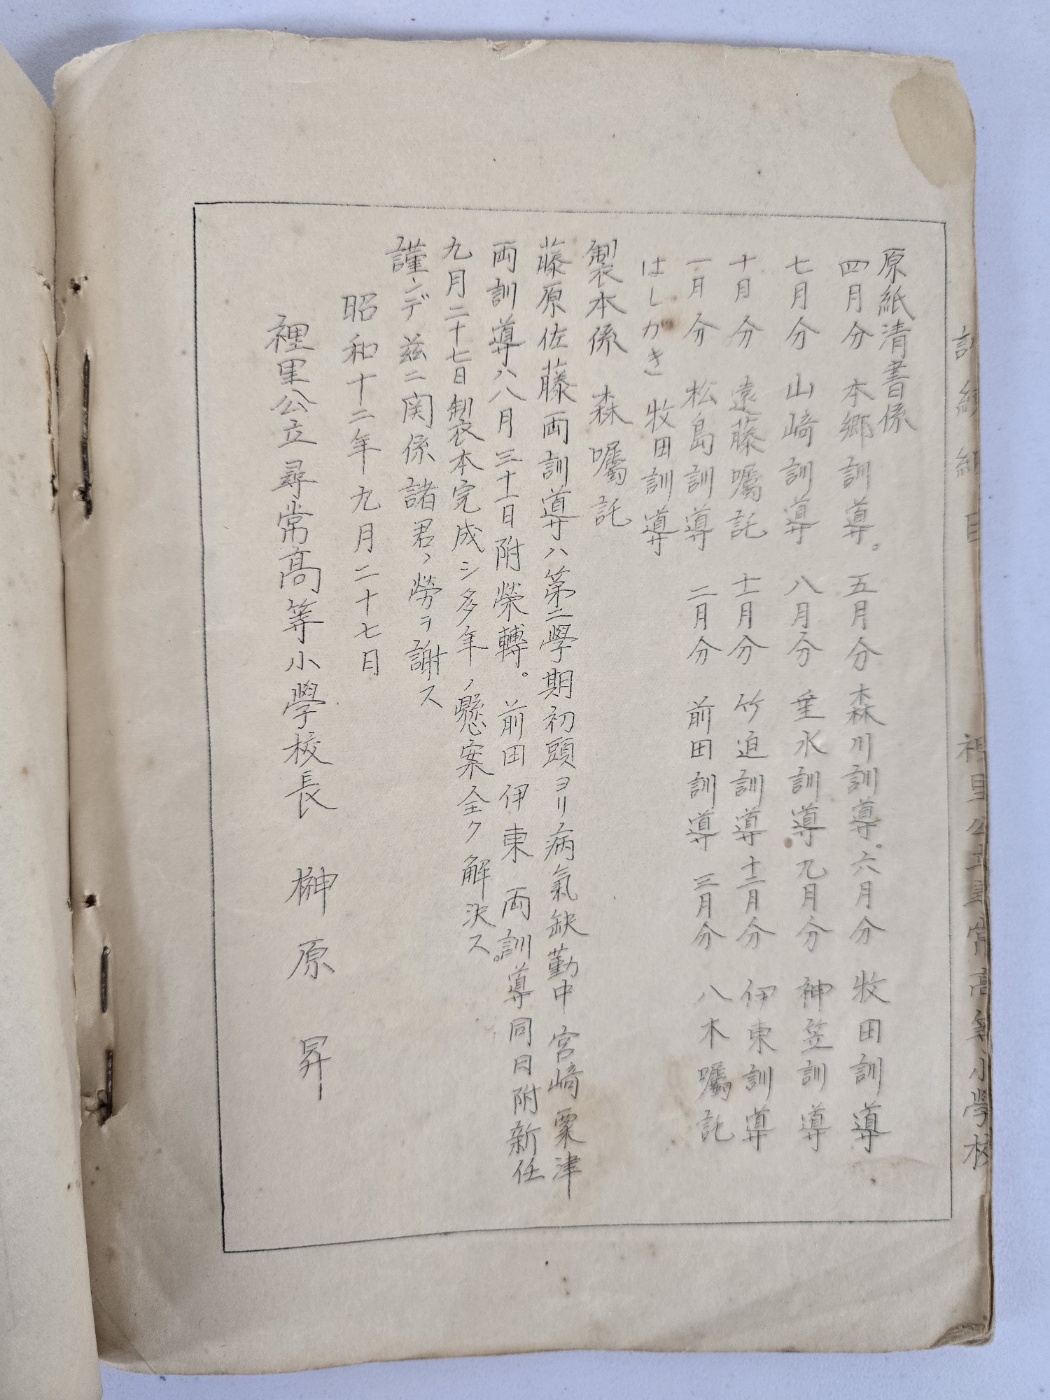 原紙清書係
四月分 本郷訓導。 五月分 森川訓導。 六月分 牧田訓導
七月分 山崎訓導 八月分 垂水訓導 九月分 神笠訓導
十月分 遠藤嘱託 十一月分 竹迫訓導 十二月分 伊東訓導
一月分 松島訓導 二月分 前田訓導 三月分 八木嘱託
はしがき 牧田訓導
製本係 森嘱託
藤原佐藤両訓導ハ第二學期初頭ヨリ病氣缺勤中 宮﨑粟津
両訓導ハ八月三十一日附榮轉。 前田伊東両訓導同日附新任
九月二十七日製本完成シ多年ノ懸案全ク解決ス。
謹ンデ茲ニ関係諸君ノ勞ヲ謝ス
昭和十二年九月二十七日
裡里公立尋常高等小學校長 榊原昇
裡里公立尋常高等小學校